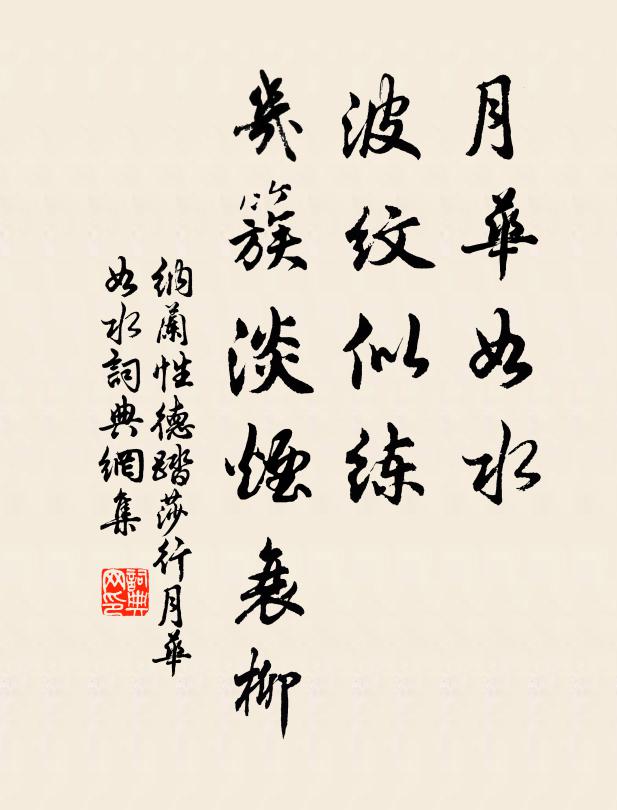 月華如水
波紋似練
幾簇淡煙衰柳
納蘭性德踏莎行月華
如水詞典網集
詞典
网印